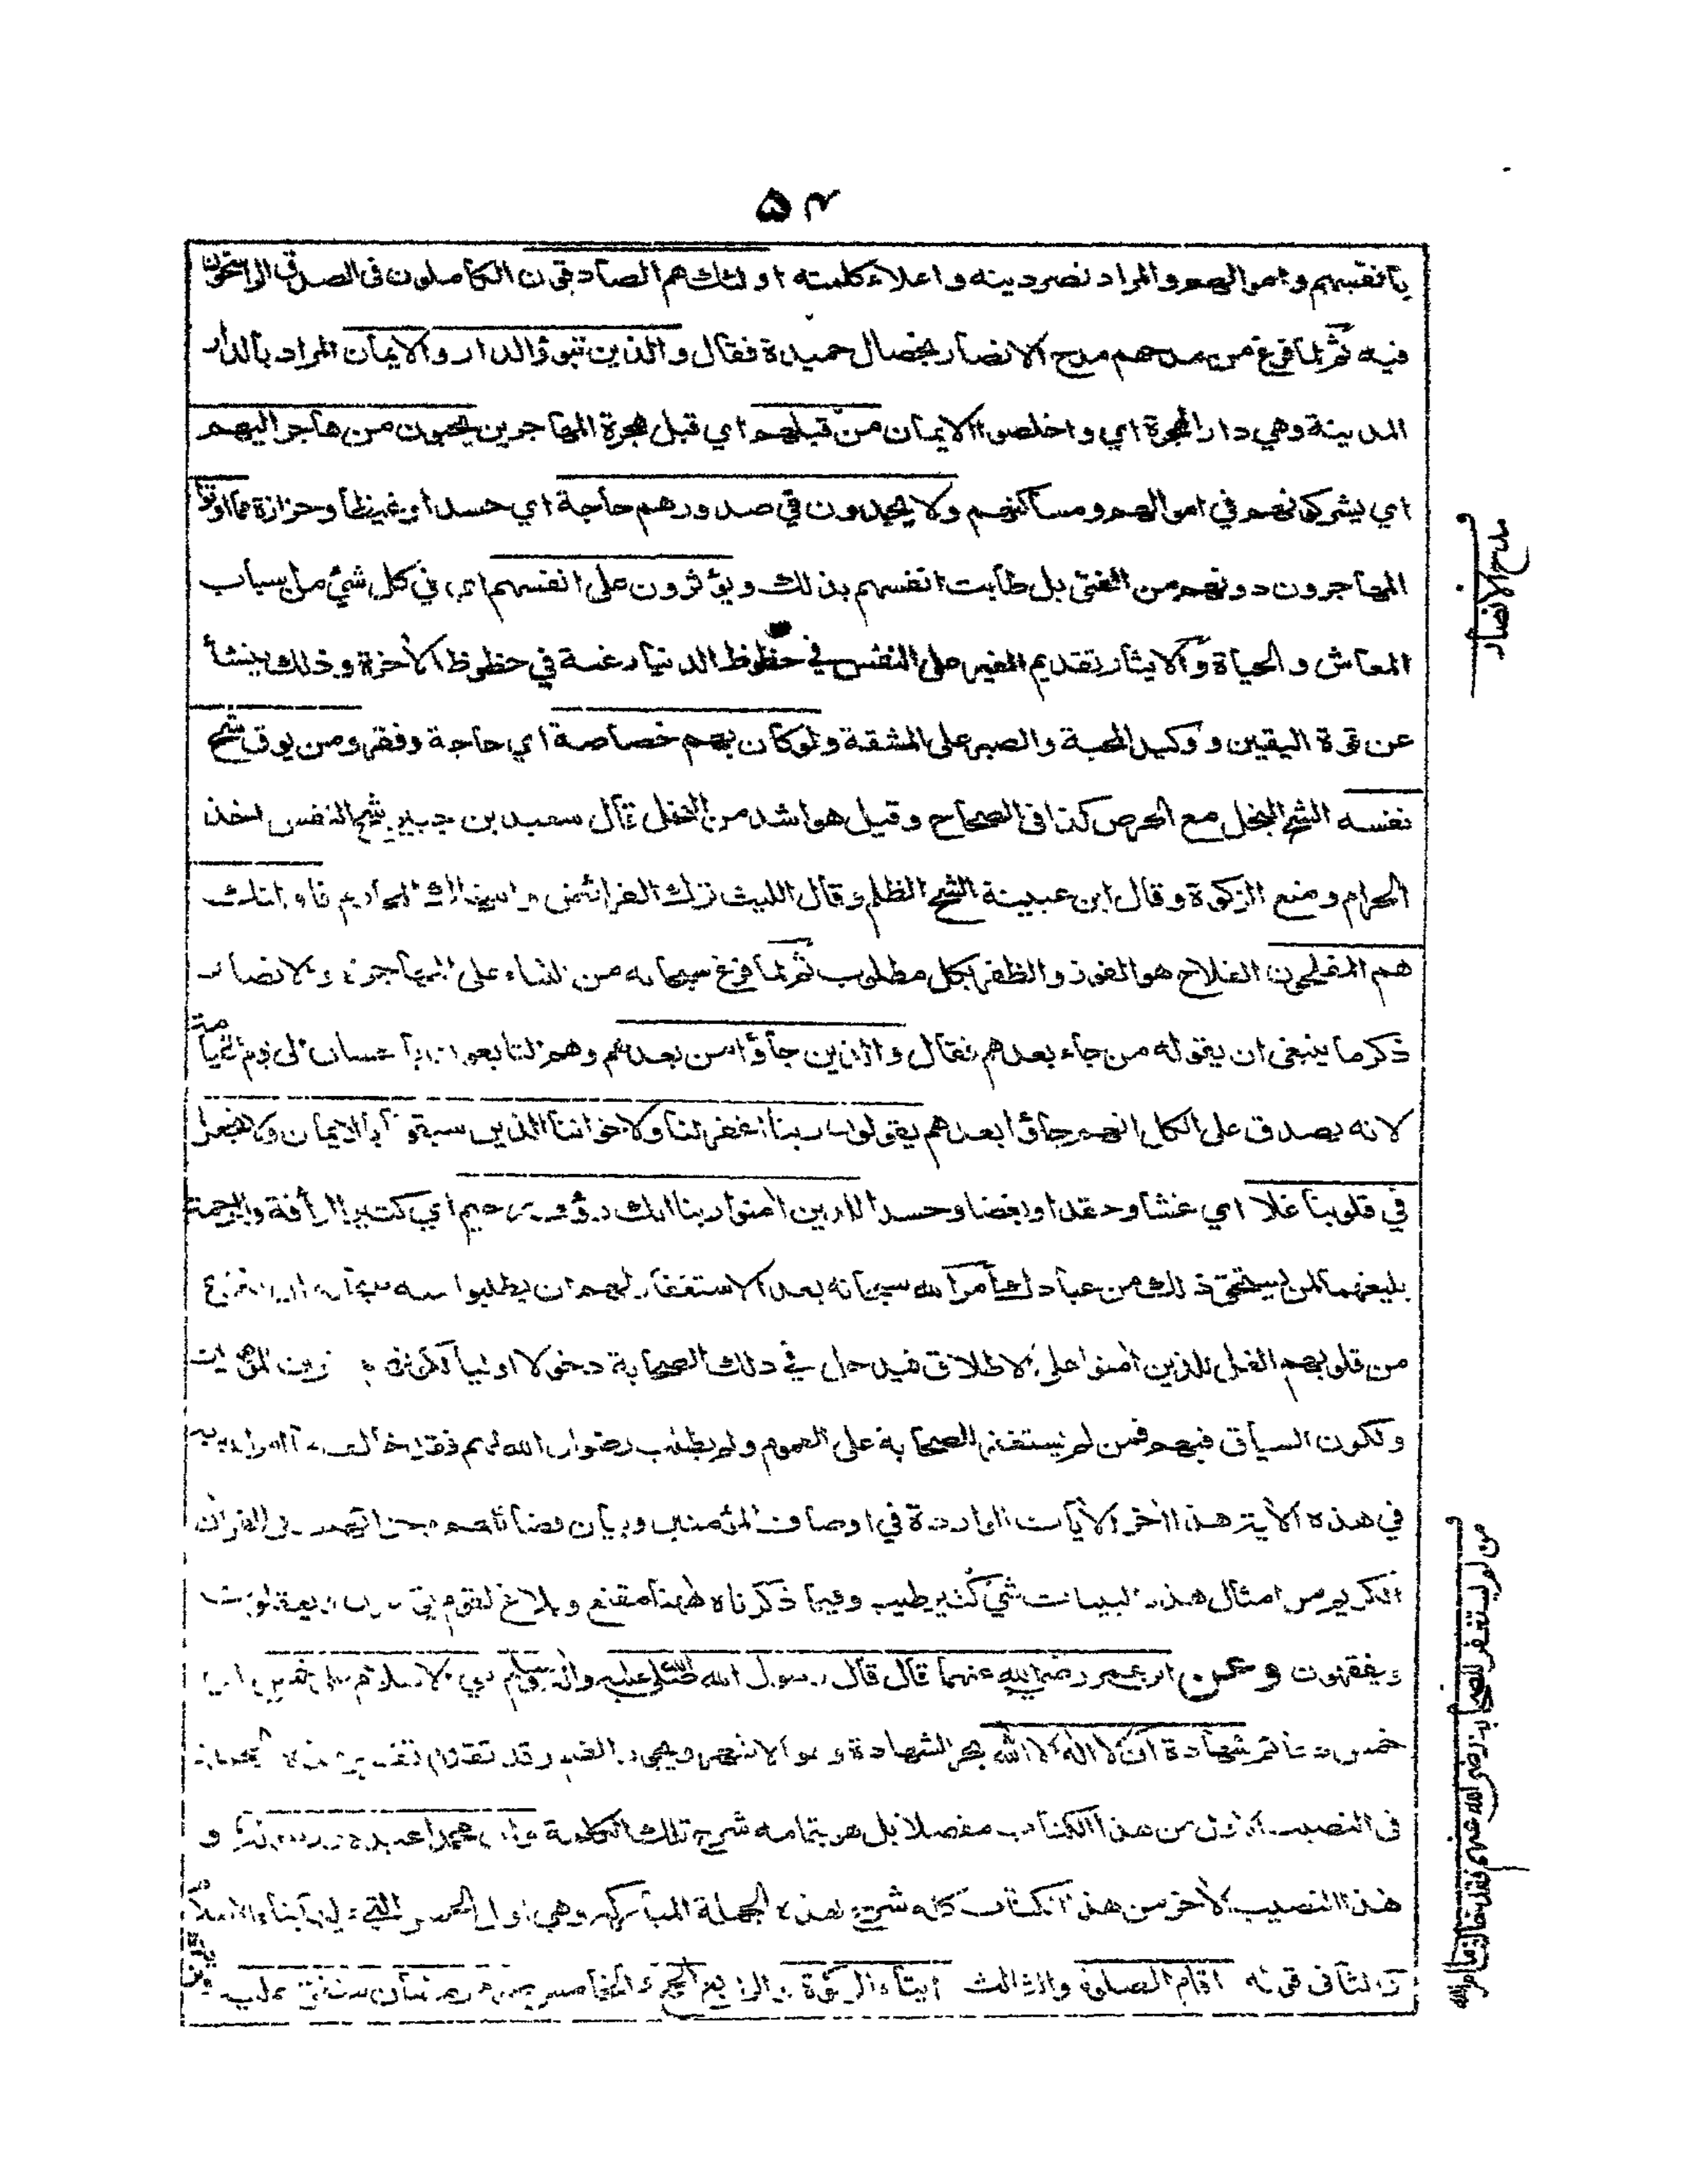 ٥٤
بأنفسهم واموالهم والمراد نصر دينه واعلاء كلمته اولئك هم الصادقون الكاملون فى الصدق الراسخون
فيه ثم لما فرغ من مدحهم مدح الانصار بخصال حميدة فقال والذين تبوؤ الدار والايمان المراد بالدار
المدينة وهي دار الهجرة اي واخلصوا الايمان من قبلهم اي قبل هجرة المهاجرين يحبون من هاجر اليهم
اي يشركونهم في اموالهم ومساكنهم ولا يجدون في صدورهم حاجة اي حسدا وغيظا وحزازة مما اوتوا
المهاجرون دونهم من الفئ بل طابت انفسهم بذلك ويؤثرون على انفسهم اي في كل شئ من اسباب
المعاش والحياة والايثار تقديم الغير على النفس في حظوظ الدنيا رغبة في حظوظ الأخرة وذلك ينشأ
عن قوة اليقين ووكيد المحبة والصبر على المشقة ولو كان بهم خصاصة اي حاجة وفقر ومن يوق شح
نفسه الشح البخل مع الحرص كذا فى الصحاح وقيل هو اشد من البخل قال سعيد بن جبير شح النفس اخذ
الحرام ومنع الزكوة وقال ابن عيينة الشح الظلم وقال الليث ترك الفرائض وانتهاك المحارم فاولئك
هم المفلحون الفلاح هو الفوز والظفر بكل مطلوب ثم لما فرغ سبحانه من الثناء على المهاجرين والانصار
ذكر ما ينبغى ان يقوله من جاء بعدهم فقال والذين جاؤا من بعدهم وهم التابعون باحسان الى يوم القيامة
لانه يصدق على الكل انهم جاؤا بعدهم يقولون ربنا اغفر لنا ولاخواننا الذين سبقونا بالايمان ولا تجعل
في قلوبنا غلا اي غشا وحقدا وبغضا وحسدا للذين أمنوا ربنا انك رؤف رحيم اي كثير الرأفة والرحمة
بليغهما لمن يستحق ذلك من عبادك امر الله سبحانه بعد الاستغفار لهم ان يطلبوا من الله سبحانه ان ينزع
من قلوبهم الغل للذين أمنوا على الاطلاق فيدخل في ذلك الصحابة دخولا اوليا لكونهم
ولكون السياق فيهم فمن لم يستغفر للصحابة على العموم ولم يطلب رضوان الله لهم فقد خالف ما امر الله به
في هذه الأية هذا أخر الأيات الواردة في اوصاف المؤمنين وبيان فضائلهم فى القرأن
الكريم من امثال هذه البينات شئ كثير طيب وفيما ذكرناه ههنا مقنع وبلاغ لقوم يعقلون
ويفقهون وعن ابن عمر رضي الله عنهما قال قال رسول الله صلى الله عليه واله وسلم بني الاسلام على خمس
خمس دعائم شهادة ان لا اله الا الله بجر الشهادة وهو الاشهر ويجوز الرفع وقد تقدم تفسير هذه الجملة
فى النصيب الاول من هذا الكتاب مفصلا بل هو بتمامه شرح تلك الكلمة وان محمدا عبده ورسوله و
هذا النصيب الأخر من هذا الكتاب كله شرح لهذه الجملة المباركة وهي اول الخمس التي
والثانى قوله اقام الصلوة والثالث ايتاء الزكوة والرابع الحج والخامس صوم رمضان متفق عليه
مدح الانصار
من لم يستغفر للصحابة رضي الله عنهم فقد خالف امر الله